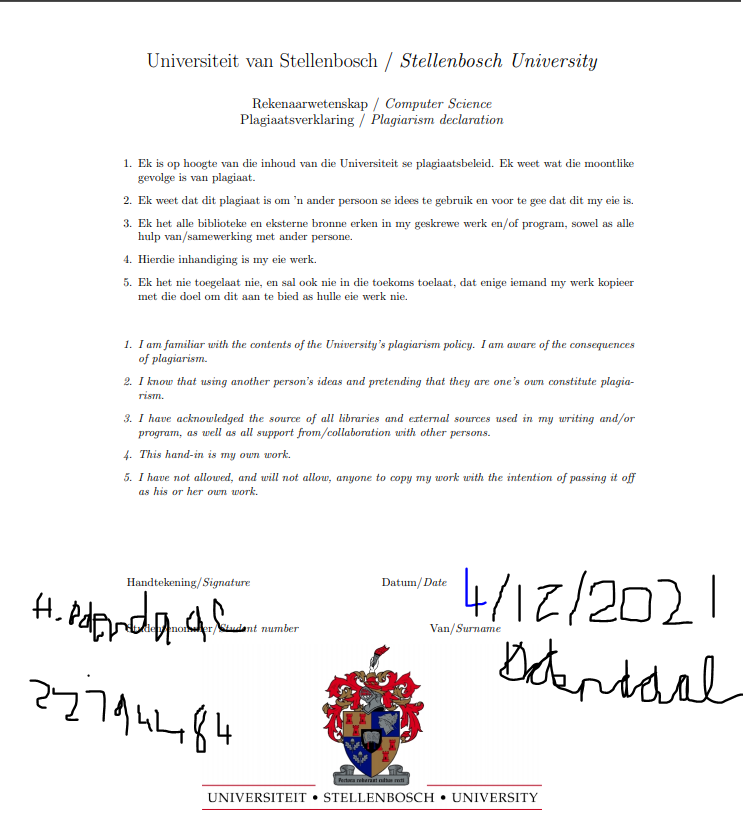 Universiteit van Stellenbosch / Stellenbosch University
Rekenaarwetenskap / Computer Science
Plagiaatsverklaring / Plagiarism declaration
1. Ek is op hoogte van die inhoud van die Universiteit se plagiaatsbeleid. Ek weet wat die moontlike
gevolge is van plagiaat.
2. Ek weet dat dit plagiaat is om 'n ander persoon se idees te gebruik en voor te gee dat dit my eie is.
3. Ek het alle biblioteke en eksterne bronne erken in my geskrewe werk en/of program, sowel as alle
hulp van/samewerking met ander persone.
4. Hierdie inhandiging is my eie werk.
5. Ek het nie toegelaat nie, en sal ook nie in die toekoms toelaat, dat enige iemand my werk kopieer
met die doel om dit aan te bied as hulle eie werk nie.
1. I am familiar with the contents of the University's plagiarism policy. I am aware of the consequences
of plagiarism.
2. I know that using another person's ideas and pretending that they are one's own constitute plagia-
rism.
3. I have acknowledged the source of all libraries and external sources used in my writing and/or
program, as well as all support from/collaboration with other persons.
4. This hand-in is my own work.
5. I have not allowed, and will not allow, anyone to copy my work with the intention of passing it off
as his or her own work.
Handtekening/Signature Datum/Date 4/12/2021
H.
Studentenommer/Student number Van/Surname
Odendaal
Pectora roborant cultus recti
UNIVERSITEIT • STELLENBOSCH • UNIVERSITY